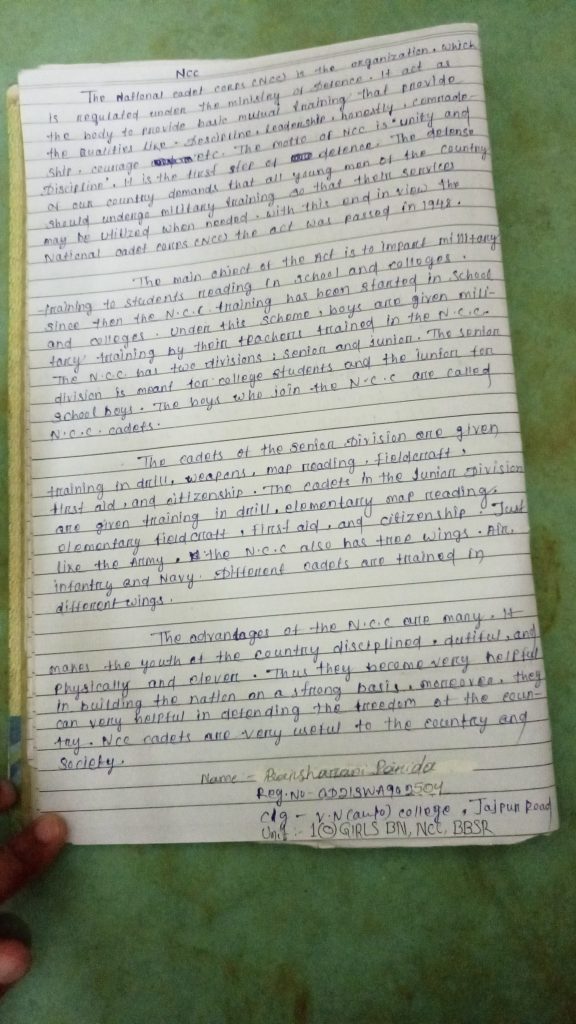 NCC
The National cadet corps (NCC) is the organization, which
is regulated under the ministry of defence. It act as
the body to provide basic mutual training that provide
the qualities like - Descipline, Leadership, honestly, comrade-
ship, courage etc. The motto of NCC is "unity and
Discipline". It is the first step of defence. The defense
of our country demands that all young men of the country
should undergo military training so that their services
may be utilized when needed. With this end in view the
National cadet corps (NCC) the act was passed in 1948.
The main object of the Act is to impart military
training to students reading in school and colleges.
Since then the N.C.C training has been started in school
and colleges. Under this scheme, boys are given mili-
tary training by their teachers trained in the N.C.C.
The N.C.C has two divisions; senior and junior. The senior
division is meant for college students and the junior for
school boys. The boys who join the N.C.C are called
N.C.C. cadets.
The cadets of the senior Division are given
training in drill, weapons, map reading, fieldcraft,
first aid, and citizenship. The cadets in the Junior Division
are given training in drill, elementary map reading,
elementary field craft, first aid, and citizenship. Just
like the Army, the N.C.C also has tree wings. Air,
infantry and Navy. Different cadets are trained in
different wings.
The advantages of the N.C.C are many. It
makes the youth of the country disciplined, dutiful, and
physically and clever. Thus they become very helpful
in building the nation on a strong basis, moreover, they
can very helpful in defending the freedom of the coun-
try. Ncc cadets are very useful to the country and
society.
Name - Parida
Reg.No- OD21SWA902504
clg - V.N(auto) college, Jajpur Road
Unit :- 1(O) GIRLS BN, NCC, BBSR